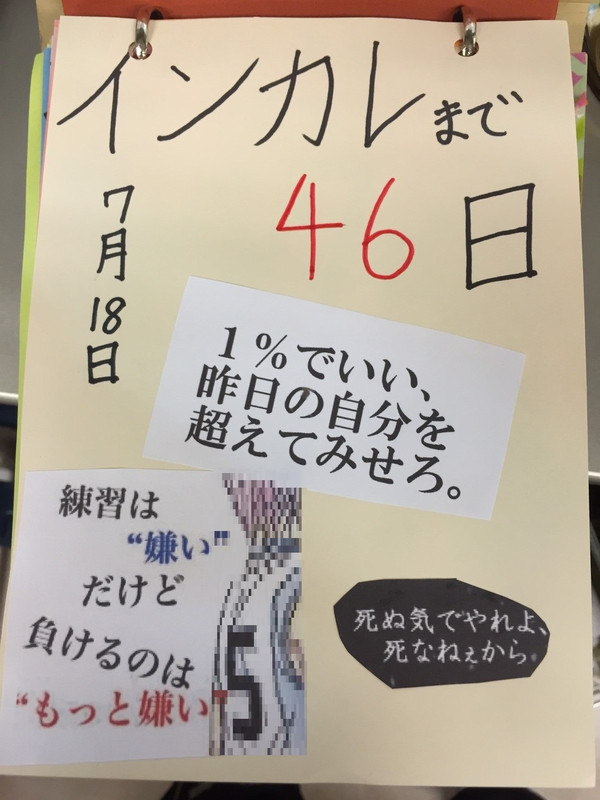 インカレまで
46日
7月18日
1%でいい、
昨日の自分を
超えてみせろ。
練習は
“嫌い”
だけど
負けるのは
“もっと嫌い”
5
死ぬ気でやれよ、
死なねぇから